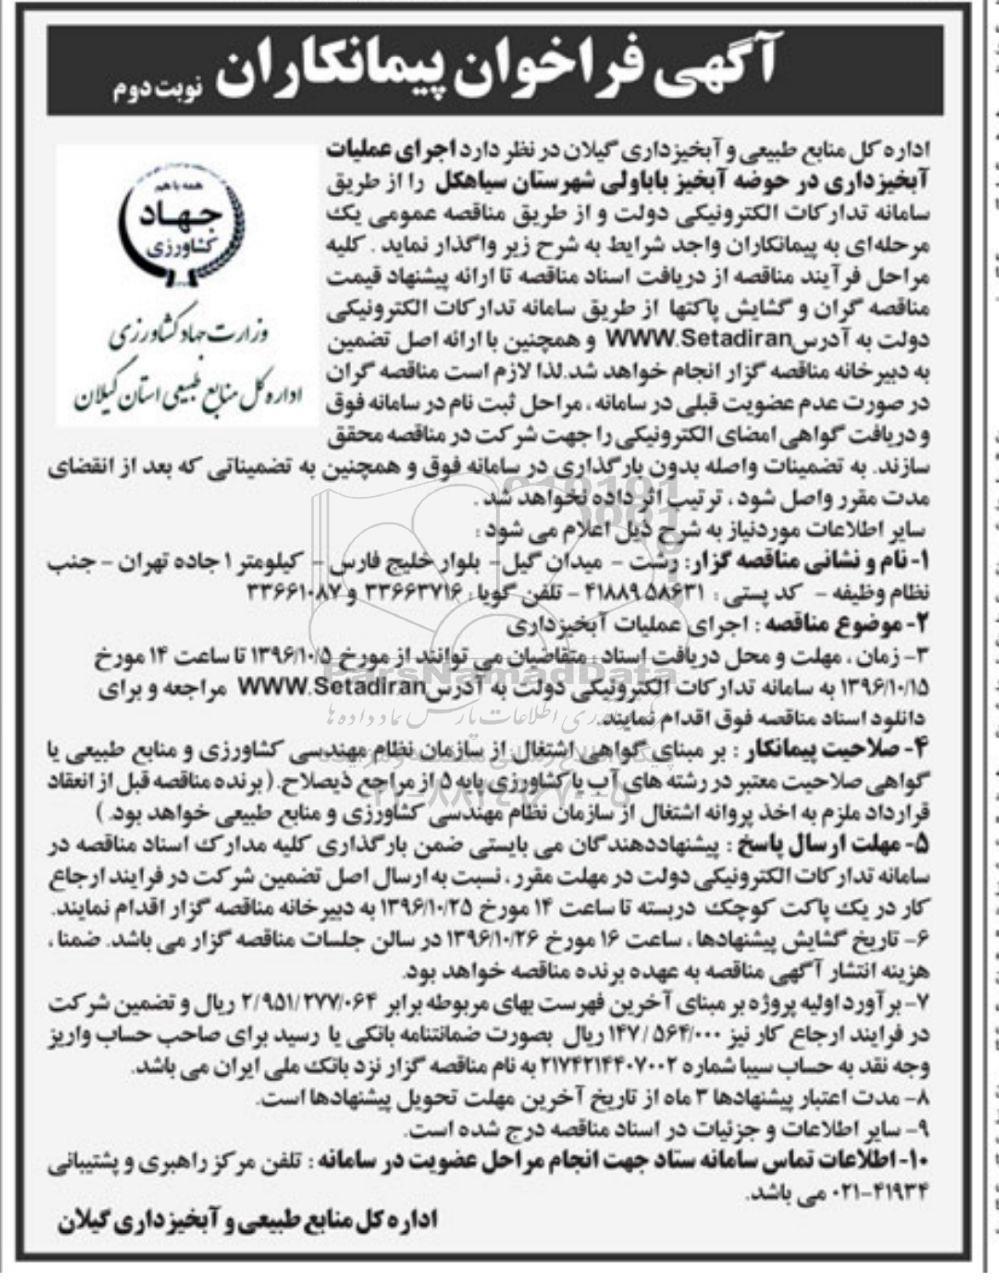 آگهی فراخوان پیمانکاران نوبت دوم
اداره کل منابع طبیعی و آبخیزداری گیلان در نظر دارد اجرای عملیات
آبخیزداری در حوضه آبخیز باباولی شهرستان سیاهکل را از طریق
سامانه تدارکات الکترونیکی دولت و از طریق مناقصه عمومی یک
مرحله‌ای به پیمانکاران واجد شرایط به شرح زیر واگذار نماید . کلیه
مراحل فرآیند مناقصه از دریافت اسناد مناقصه تا ارائه پیشنهاد قیمت
مناقصه گران و گشایش پاکتها از طریق سامانه تدارکات الکترونیکی
دولت به آدرس WWW.Setadiran و همچنین با ارائه اصل تضمین
به دبیرخانه مناقصه گزار انجام خواهد شد.لذا لازم است مناقصه گران
در صورت عدم عضویت قبلی در سامانه ، مراحل ثبت نام در سامانه فوق
و دریافت گواهی امضای الکترونیکی را جهت شرکت در مناقصه محقق
سازند. به تضمینات واصله بدون بارگذاری در سامانه فوق و همچنین به تضمیناتی که بعد از انقضای
مدت مقرر واصل شود ، ترتیب اثر داده نخواهد شد .
سایر اطلاعات موردنیاز به شرح ذیل اعلام می شود :
۱- نام و نشانی مناقصه گزار: رشت - میدان گیل- بلوار خلیج فارس - کیلومتر ۱ جاده تهران - جنب
نظام وظیفه - کد پستی : ۴۱۸۸۹۵۸۶۳۱ - تلفن گویا : ۳۳۶۶۳۷۱۶ و ۳۳۶۶۱۰۸۷
۲- موضوع مناقصه : اجرای عملیات آبخیزداری
۳- زمان ، مهلت و محل دریافت اسناد : متقاضیان می توانند از مورخ ۱۳۹۶/۱۰/۵ تا ساعت ۱۴ مورخ
۱۳۹۶/۱۰/۱۵ به سامانه تدارکات الکترونیکی دولت به آدرس WWW.Setadiran مراجعه و برای
دانلود اسناد مناقصه فوق اقدام نمایند.
۴- صلاحیت پیمانکار : بر مبنای گواهی اشتغال از سازمان نظام مهندسی کشاورزی و منابع طبیعی یا
گواهی صلاحیت معتبر در رشته های آب یا کشاورزی پایه ۵ از مراجع ذیصلاح. ( برنده مناقصه قبل از انعقاد
قرارداد ملزم به اخذ پروانه اشتغال از سازمان نظام مهندسی کشاورزی و منابع طبیعی خواهد بود. )
۵- مهلت ارسال پاسخ : پیشنهاددهندگان می بایستی ضمن بارگذاری کلیه مدارک اسناد مناقصه در
سامانه تدارکات الکترونیکی دولت در مهلت مقرر ، نسبت به ارسال اصل تضمین شرکت در فرایند ارجاع
کار در یک پاکت کوچک دربسته تا ساعت ۱۴ مورخ ۱۳۹۶/۱۰/۲۵ به دبیرخانه مناقصه گزار اقدام نمایند.
۶- تاریخ گشایش پیشنهادها ، ساعت ۱۶ مورخ ۱۳۹۶/۱۰/۲۶ در سالن جلسات مناقصه گزار می باشد. ضمنا ،
هزینه انتشار آگهی مناقصه به عهده برنده مناقصه خواهد بود.
۷- برآورد اولیه پروژه بر مبنای آخرین فهرست بهای مربوطه برابر ۲/۹۵۱/۲۷۷/۰۶۴ ریال و تضمین شرکت
در فرایند ارجاع کار نیز ۱۴۷/۵۶۴/۰۰۰ ریال بصورت ضمانتنامه بانکی یا رسید برای صاحب حساب واریز
وجه نقد به حساب سیبا شماره ۲۱۷۴۲۱۴۴۰۷۰۰۲ به نام مناقصه گزار نزد بانک ملی ایران می باشد.
۸- مدت اعتبار پیشنهادها ۳ ماه از تاریخ آخرین مهلت تحویل پیشنهادها است.
۹- سایر اطلاعات و جزئیات در اسناد مناقصه درج شده است.
۱۰- اطلاعات تماس سامانه ستاد جهت انجام مراحل عضویت در سامانه : تلفن مرکز راهبری و پشتیبانی
۰۲۱-۴۱۹۳۴ می باشد.
اداره کل منابع طبیعی و آبخیزداری گیلان
همه با هم
جهاد
کشاورزی
وزارت جهاد کشاورزی
اداره کل منابع طبیعی استان گیلان
ParsNamadData